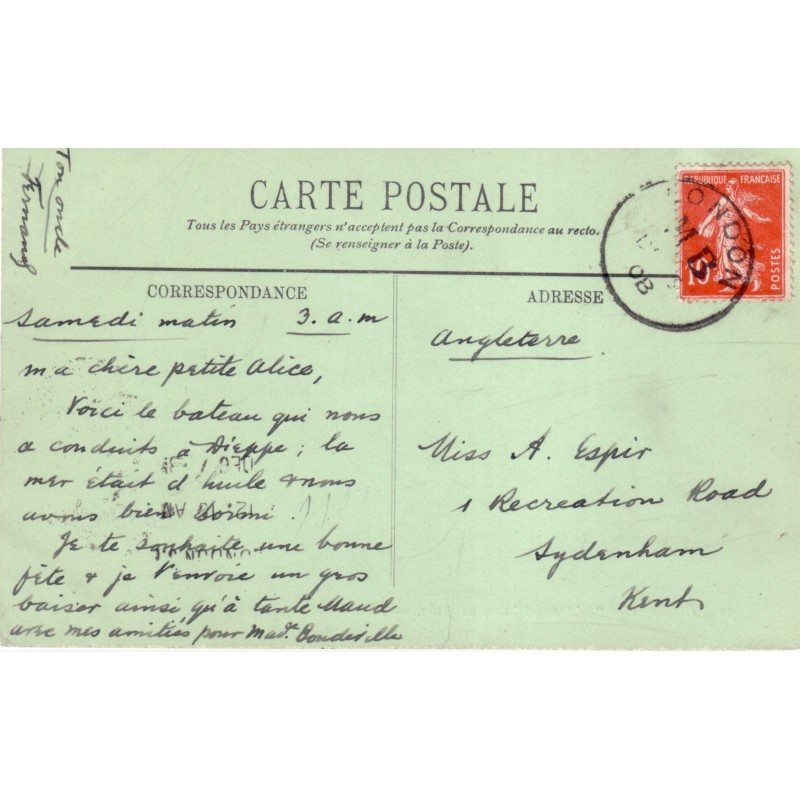 Ton oncle
Fernand
CARTE POSTALE
Tous les Pays étrangers n'acceptent pas la Correspondance au recto.
(Se renseigner à la Poste).
CORRESPONDANCE
Samedi matin 3. a.m
ma chère petite Alice,
Voici le bateau qui nous
a conduits à Dieppe; la
mer était d'huile & nous
avons bien dormi.
Je te souhaite une bonne
fête & je t'envoie un gros
baiser ainsi qu'à tante Maud
avec mes amitiés pour Made.
ADRESSE
Angleterre.
Miss A. Espir
1 Recreation Road
Sydenham
Kent
REPUBLIQUE FRANÇAISE
POSTES
10
LONDON
M B
08
DEC
12 AM